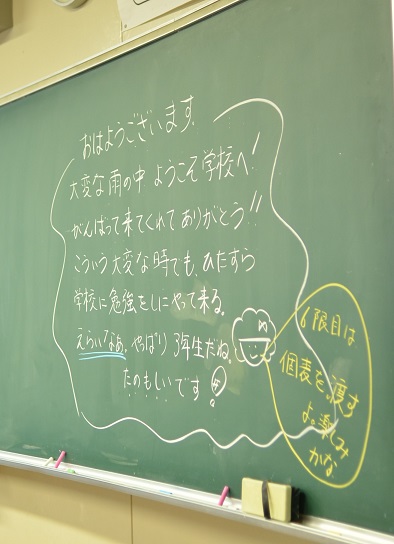 おはようございます。
大変な雨の中 ようこそ学校へ!
がんばって来てくれてありがとう!!
こういう大変な時でも、ひたすら
学校に勉強をしにやって来る。
えらいなあ。やっぱり3年生だね、
たのもしいです
6限目は
個表を、渡す
よ。楽しみ
かな